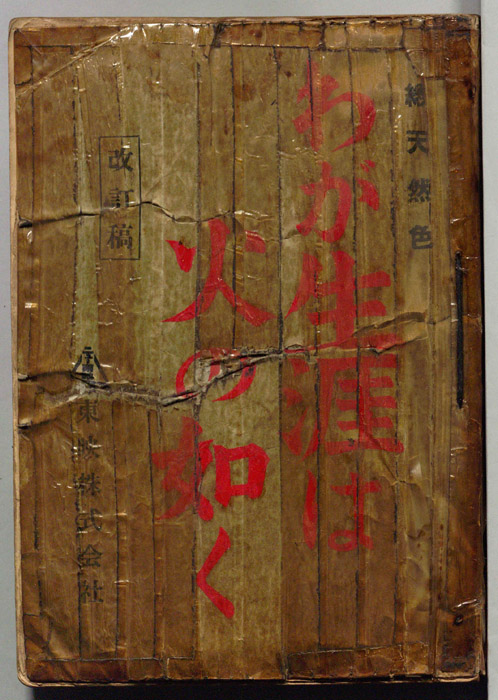 總天然色
わが生涯は
火の如く
改訂稿
東映株式会社